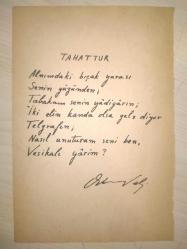 TAHATTUR
Alnımdaki bıçak yarası
Senin yüzünden;
Tabakam senin yâdigârın;
"İki elin kanda olsa gel" diyor
Telgrafın;
Nasıl unuturum seni ben,
Vesikalı yârim?
Orhan Veli